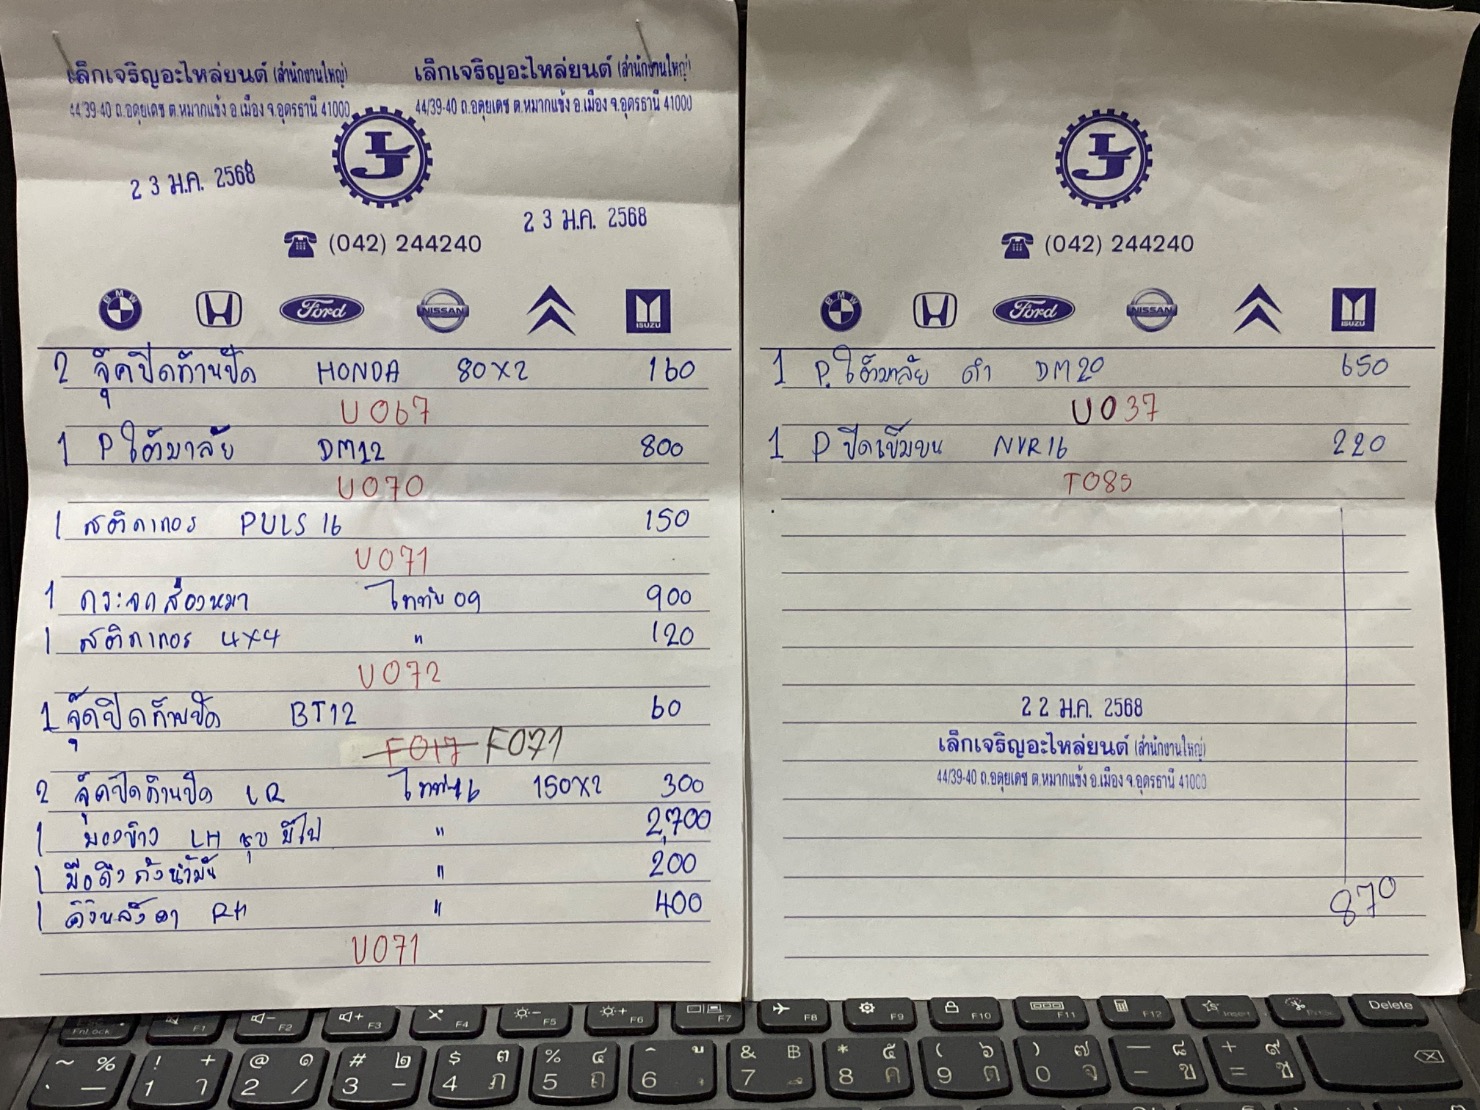 เล็กเจริญอะไหล่ยนต์ (สำนักงานใหญ่)
44/39-40 ถ.อดุยเดช ต.หมากแข้ง อ.เมือง จ.อุดรธานี 41000
เล็กเจริญอะไหล่ยนต์ (สำนักงานใหญ่)
44/39-40 ถ.อดุยเดช ต.หมากแข้ง อ.เมือง จ.อุดรธานี 41000
LJ
23 ม.ค. 2568
23 ม.ค. 2568
(042) 244240
BMW Ford NISSAN ISUZU
2 จุ๊คปิดก้านปัด HONDA 80X2 160
U067
1 P ใต้มาลัย DM12 800
U070
1 สติกเกอร์ PULS 16 150
U071
1 กระจกส่องหมา ไททัน 09 900
1 สติกเกอร์ 4X4 " 120
U072
1 จุ๊ดปิดก้านปัด BT12 60
F017 F071
2 จุ๊ดปิดก้านปัด LR ไททัน 16 150X2 300
1 มองข้าง LH ชุบ มีไฟ " 2,700
1 มือดึงถังน้ำมัน " 200
1 คิ้วหลังคา RH " 400
U071
LJ
(042) 244240
BMW Ford NISSAN ISUZU
1 P.ใต้มาลัย ดำ DM20 650
U037
1 P ปิดเข็มขน NVR16 220
T085
22 ม.ค. 2568
เล็กเจริญอะไหล่ยนต์ (สำนักงานใหญ่)
44/39-40 ถ.อดุยเดช ต.หมากแข้ง อ.เมือง จ.อุดรธานี 41000
870
FnLock F1 F2 F3 F4 F5 F6 F7 F8 F9 F10 F11 F12 Insert PrtSc Delete
~ % ! + @ ๑ # ๒ $ ๓ % ๔ ^ ู & ฿ * ๕ ( ๖ ) ๗ — ๘ + ๙
` _ 1 ๅ 2 / 3 - 4 ภ 5 ถ 6 ุ 7 ึ 8 ค 9 ต 0 จ - ข = ช